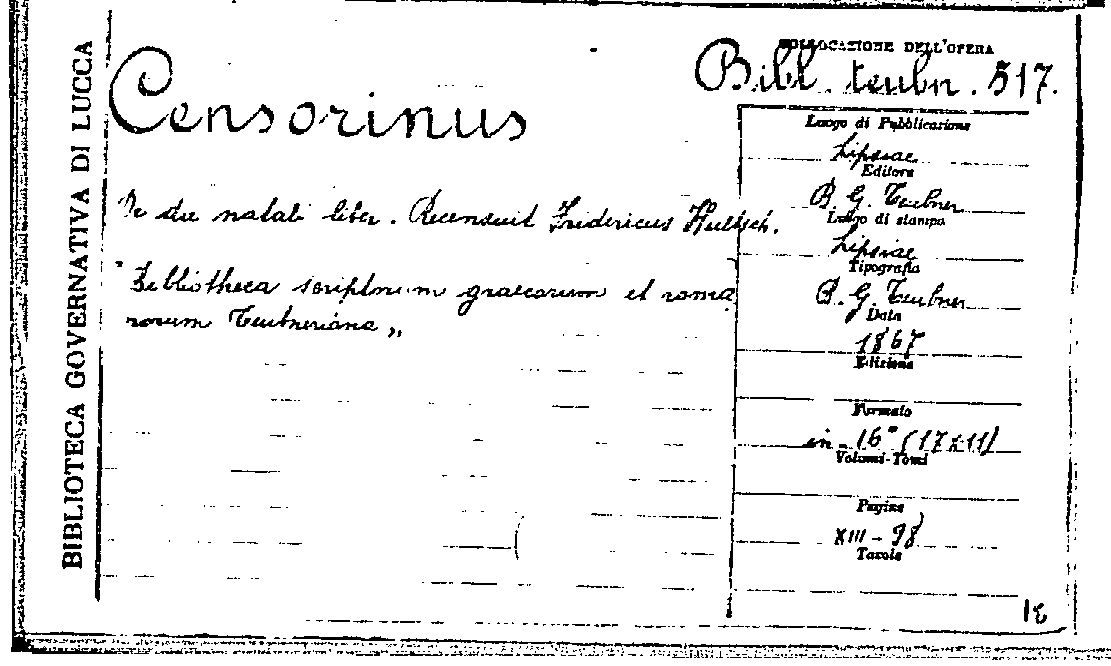 BIBLIOTECA GOVERNATIVA DI LUCCA
COLLOCAZIONE DELL'OPERA
Bibl. teubn. 517.
Censorinus
De die natali liber. Recensuit Fridericus Hultsch.
"Bibliotheca scriptorum graecorum et roma
norum Teubneriana„
Luogo di Pubblicazione
Lipsiae
Editore
B. G. Teubner
Luogo di stampa
Lipsiae
Tipografia
B. G. Teubner
Data
1867
Edizione
Formato
in-16° (17x11)
Volumi-Tomi
Pagine
XIII-98
Tavole